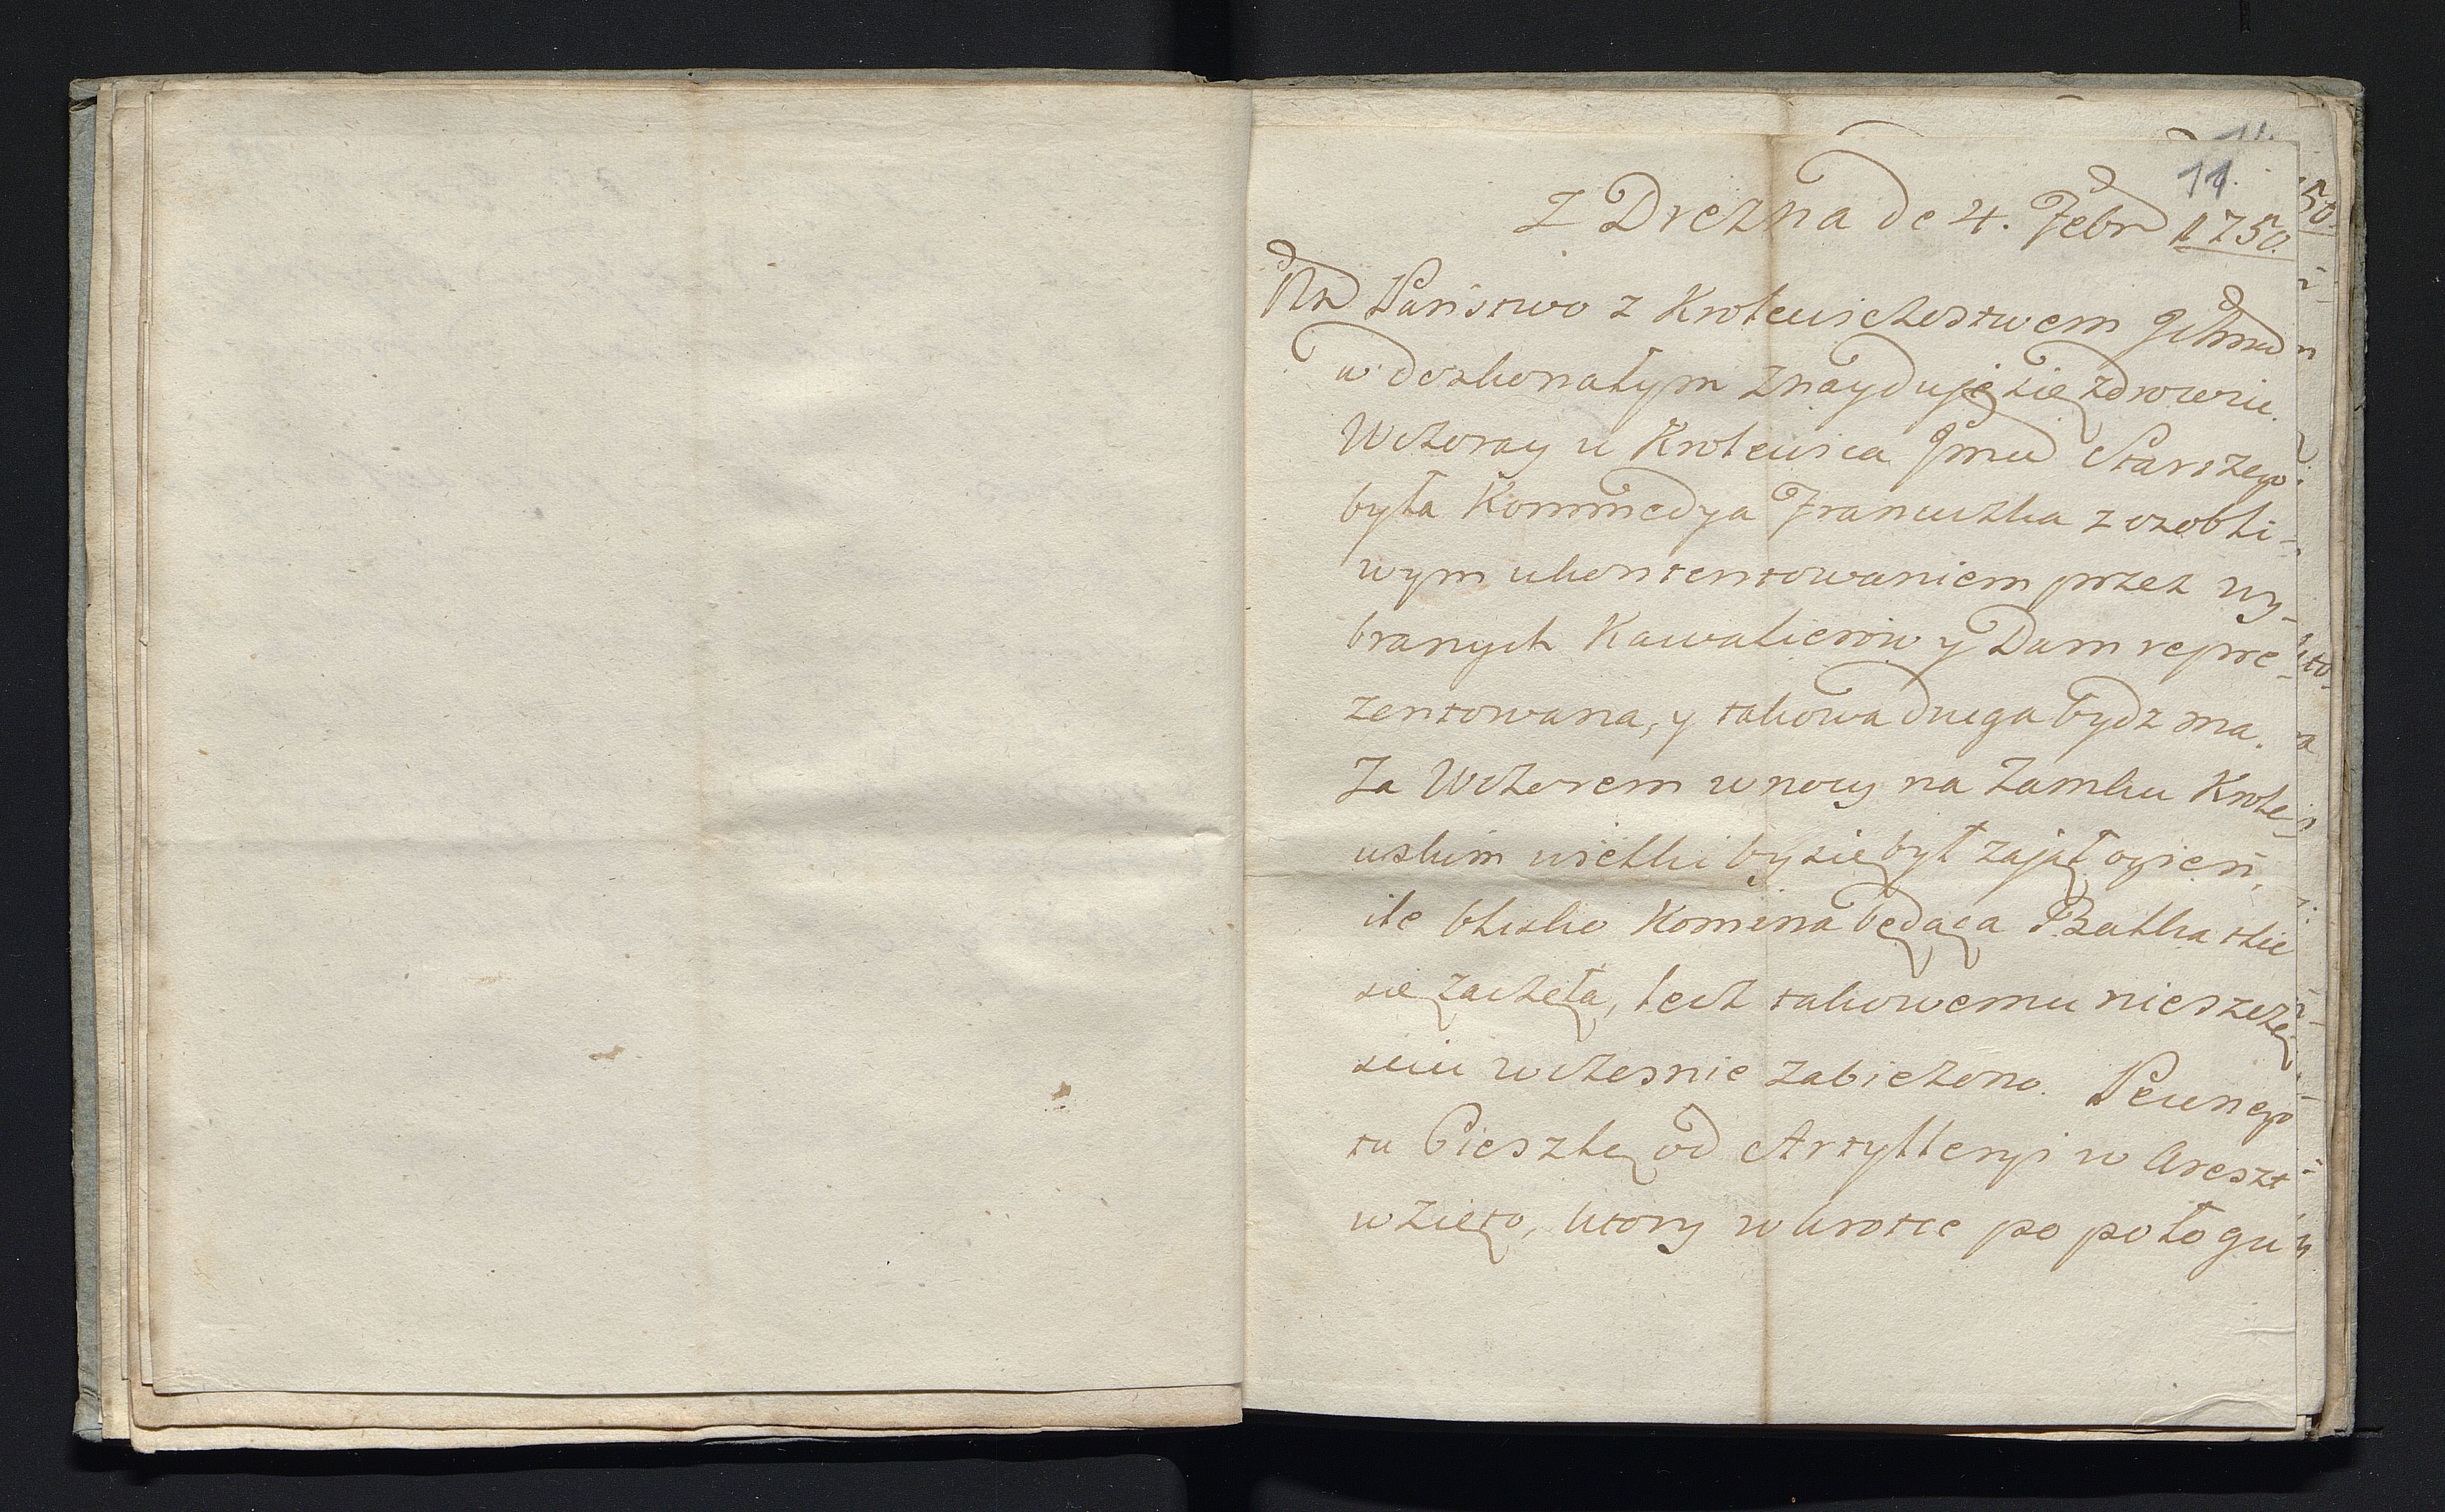 11.
Z Drezna de 4. Febr 1750.
Nn Panstwo z Krolewiczostwem Ichmci
w doskonałym znayduję się zdrowiu.
Wczoray u Krolewica Jmci Starszego
była Kommedya Francuzka z osobli-
wym ukontentowaniem przez wy-
branych Kawalierow y Dam repre-
zentowana, y takowa druga bydz ma.
Za Wczorem w nocy na Zamku Krole-
wskim wielki by się był zajął ogień,
ile blisko Komina będąca Balka tlic
się zaczęła, lecz takowemu nieszczę
sciu wczesnie zabieżono. Pewnego
tu od Artylleryi w Areszt
wzięto, ktory w krotce po połogu